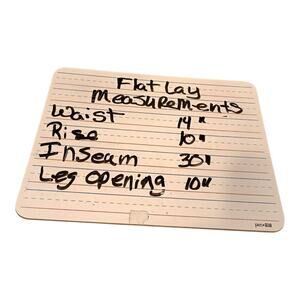 Flat Lay
Measurements
Waist 14"
Rise 10"
Inseam 30"
Leg opening 10"